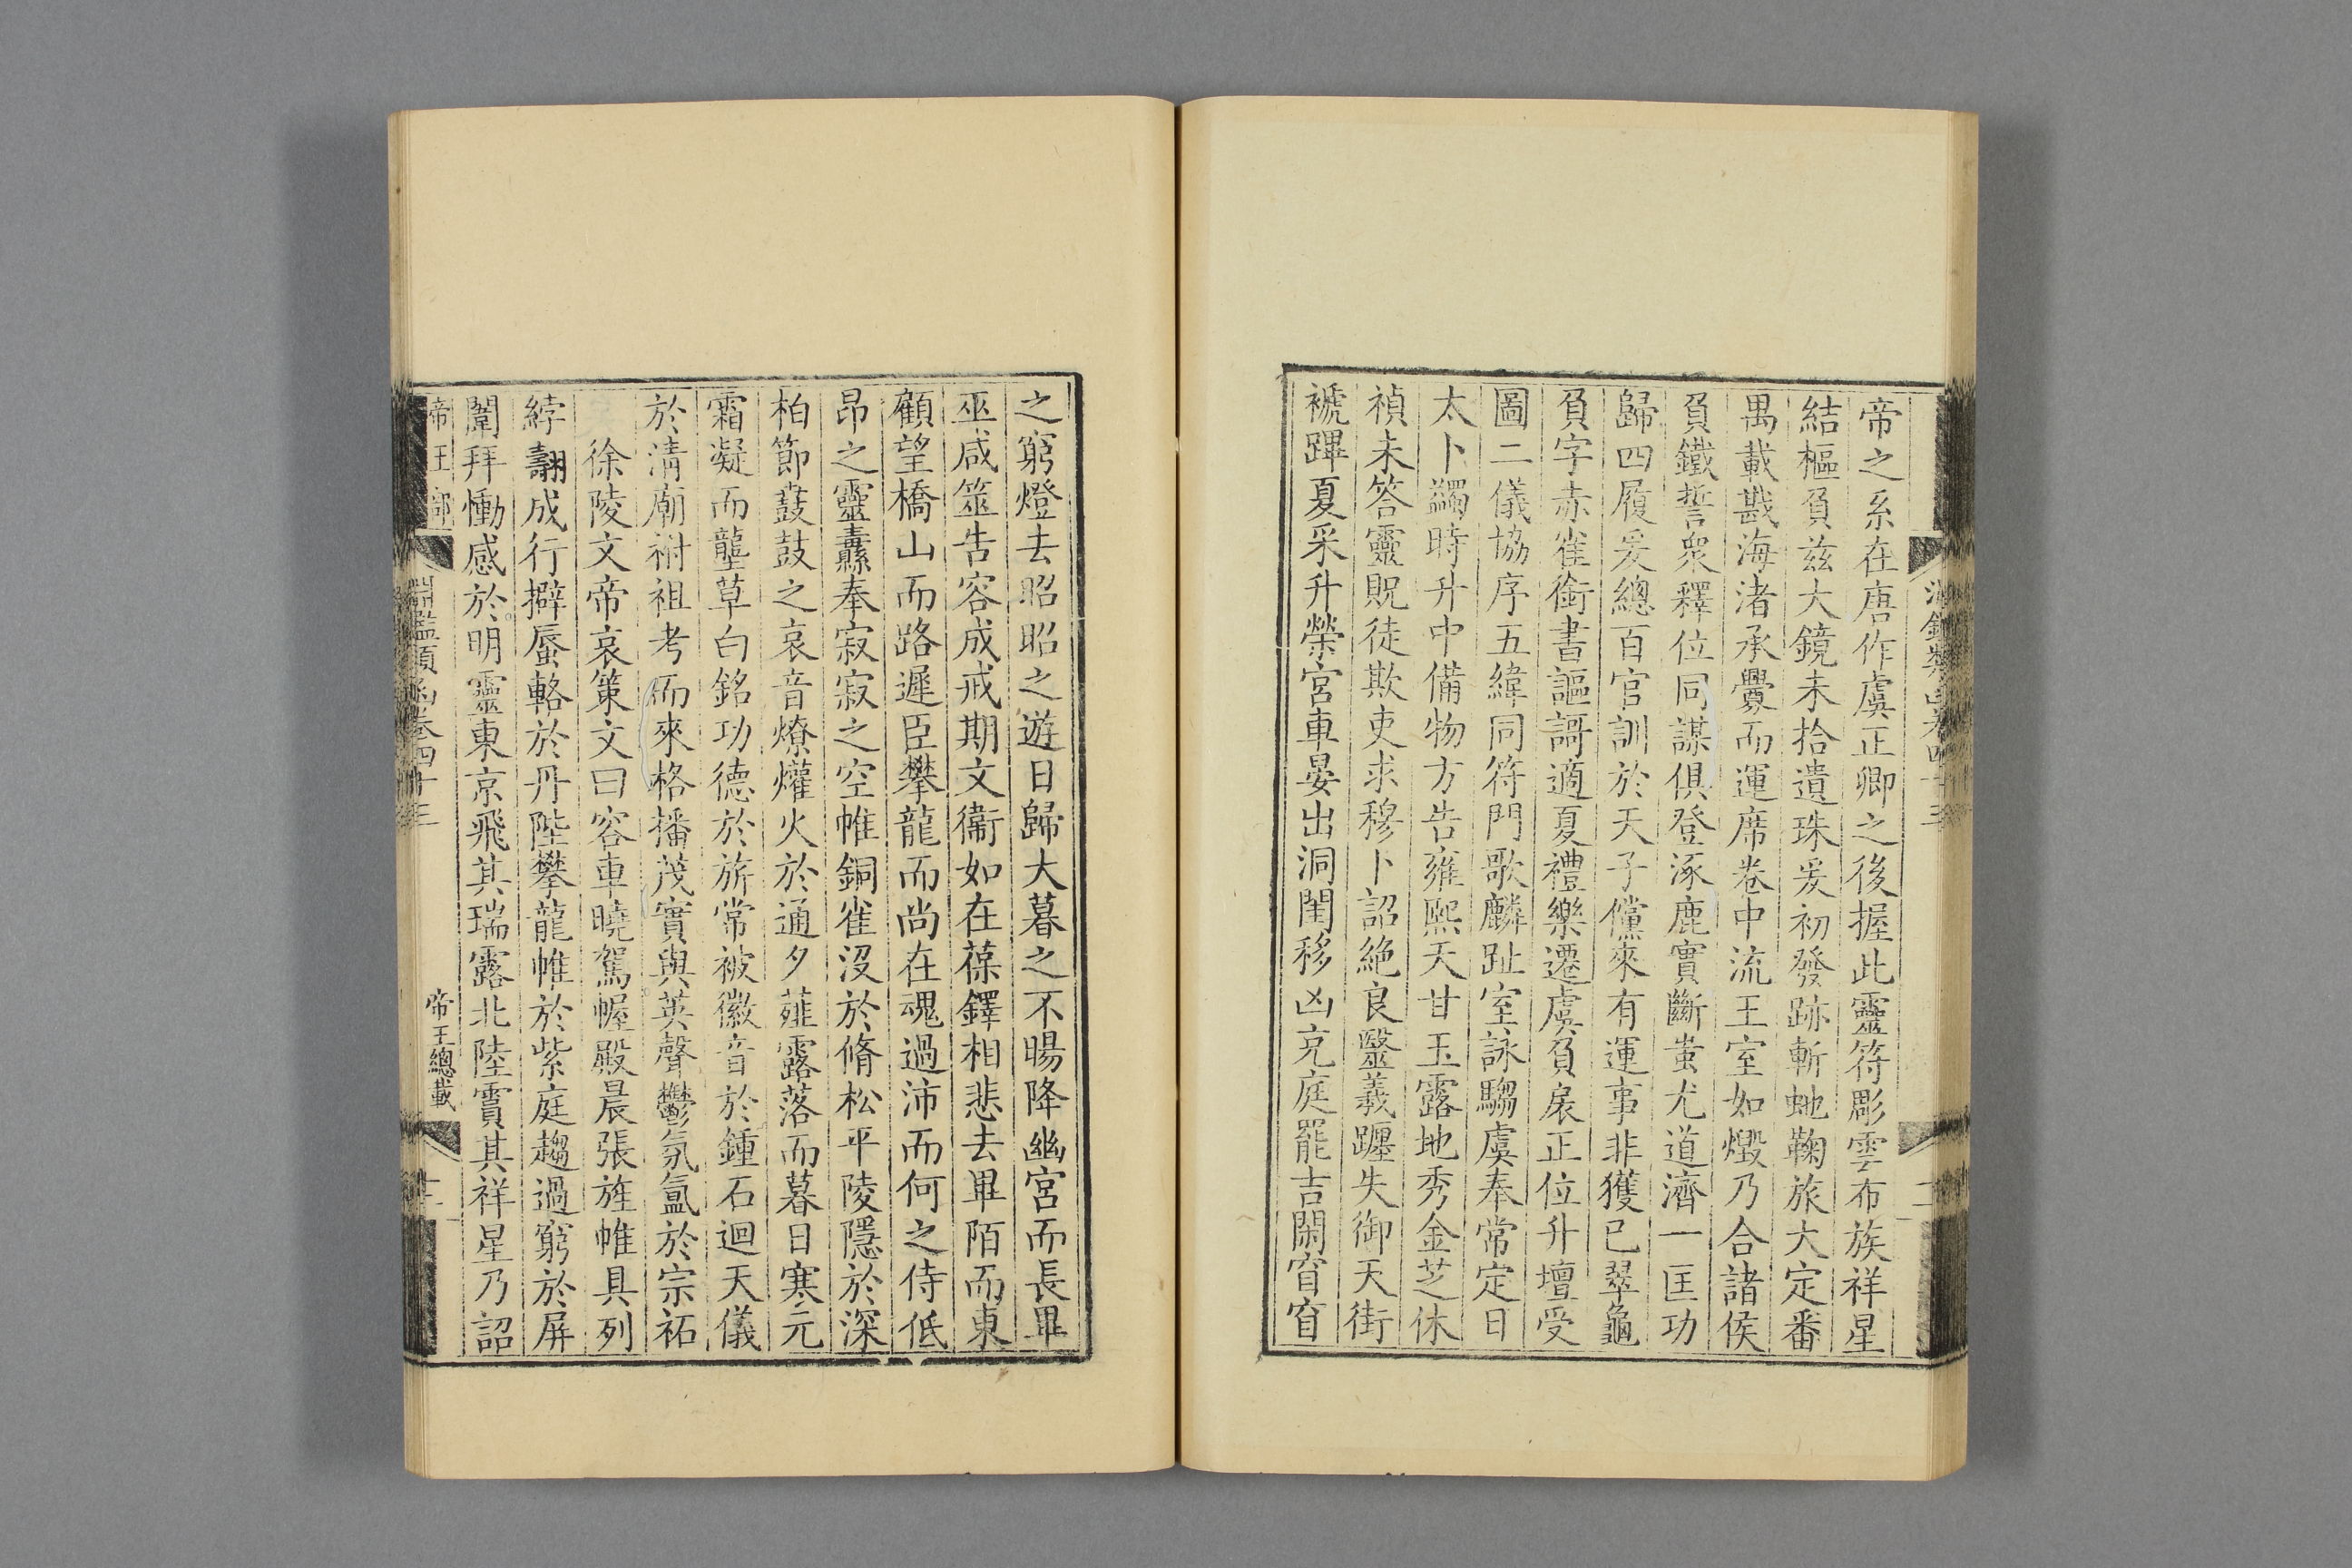 帝之系在唐作虞正卿之後握此靈符彫雲布族祥星
結樞負玆大鏡未拾遺珠爰初發跡斬虵鞠旅大定番
禺載戡海渚承釁而運席卷中流王室如燬乃合諸侯
負鐵誓衆釋位同謀俱登涿鹿實斷蚩尤道濟一匡功
歸四履爰總百官訓於天子儻來有運事非獲已翠龜
負字赤雀銜書謳謌適夏禮樂遷虞負扆正位升壇受
圖二儀協序五緯同符門歌麟趾室詠騶虞奉常定日
太卜蠲時升中備物方告雍熙天甘玉露地秀金芝休
禎未答靈貺徒欺吏求穆卜詔絶良毉羲躔失御天街
褫蹕夏采升榮宮車晏出洞閨移凶充庭罷吉閑窅窅
之窮燈去昭昭之遊日歸大暮之不暘降幽宮而長畢
巫咸筮告容成戒期文衞如在葆鐸相悲去畢陌而東
顧望橋山而路遲臣攀龍而尚在魂過沛而何之侍低
昂之靈纛奉寂寂之空帷銅雀沒於脩松平陵隱於深
柏節鼖鼓之哀音燎爟火於通夕薤露落而暮日寒元
霜凝而壟草白銘功德於旂常被徽音於鍾石迴天儀
於清廟祔祖考而來格播茂實與英聲鬱氛氳於宗祏
徐陵文帝哀策文曰容車曉駕幄殿晨張旌帷具列
綍翿成行擗蜃輅於丹陛攀龍帷於紫庭趨過窮於屏
闈拜慟感於明靈東京飛其瑞露北陸賈其祥星乃詔
帝王部
淵鑑類函卷四十三
帝王總載